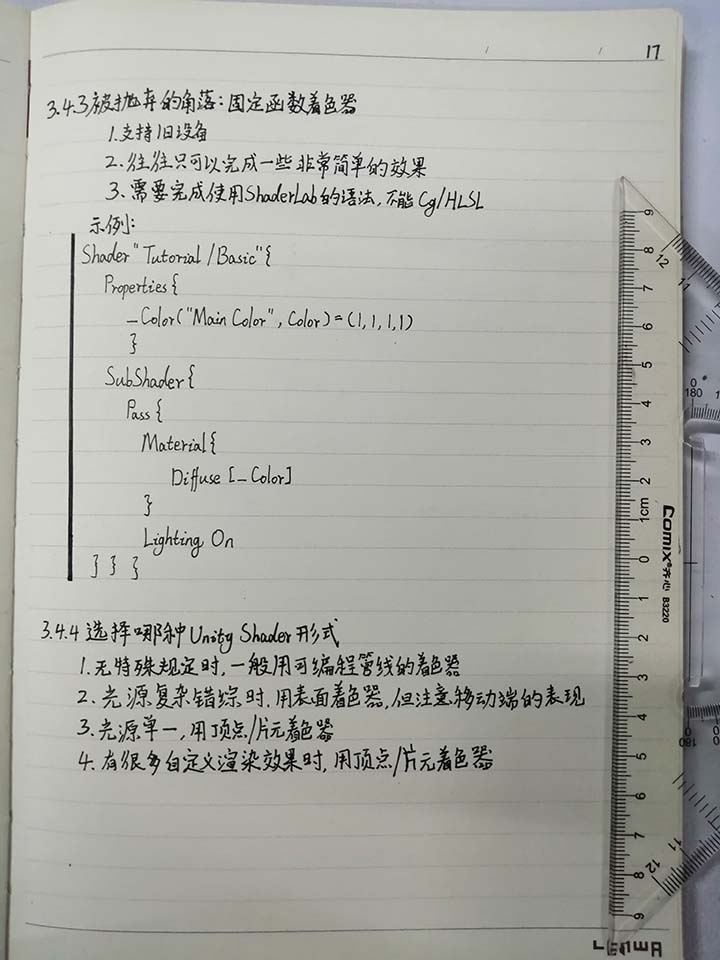 17
3.4.3 被抛弃的角落:固定函数着色器
1.支持旧设备
2.往往只可以完成一些非常简单的效果
3.需要完成使用ShaderLab的语法,不能Cg/HLSL
示例:
Shader"Tutorial/Basic"{
Properties{
_Color("Main Color", Color)=(1,1,1,1)
}
SubShader{
Pass{
Material{
Diffuse [_Color]
}
Lighting On
} } }
3.4.4 选择哪种Unity Shader形式
1.无特殊规定时,一般用可编程管线的着色器
2.光源复杂错综时,用表面着色器,但注意移动端的表现
3.光源单一,用顶点/片元着色器
4.有很多自定义渲染效果时,用顶点/片元着色器
9 8 7 6 5 4 3 2 1cm 0 1 2 3 4 5 6 7 8 9
COMIX®齐心 B3220
12 11
0
180
180
11
12